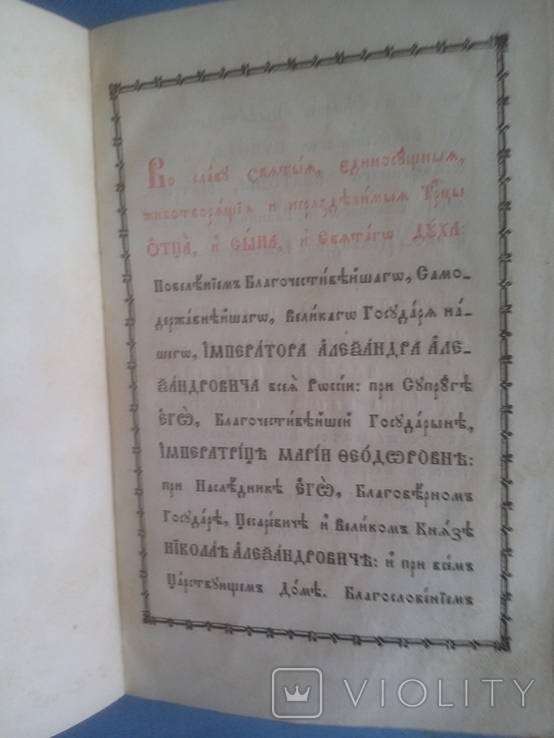 Во славу святы́я, единосꙋ́щныѧ,
животворѧ́щїѧ и нераздѣли́мыѧ Трⷪ҇цы
Ѻ҆тца̀, и҆ Сы́на, и҆ Свѧта́гѡ Дꙋ́ха:
Повелѣ́нїемъ Благочести́вѣйшагѡ, Само-
держа́внѣйшагѡ, Вели́кагѡ Госꙋдарѧ на́-
шегѡ, І҆МПЕРА́ТОРА А҆ЛЕѮА́НДРА А҆ЛЕ-
ѮА́НДРОВИЧА всеѧ̀ Рѡссі́и: при Сꙋпрꙋ́гѣ
Є҆ГѠ̀, Благочести́вѣйшей Госꙋда́рынѣ,
І҆МПЕРАТРІ́ЦѢ МАРІ́И ѲЕѺ́ДѠРОВНѢ:
при Наслѣ́дникѣ Є҆ГѠ̀, Благовѣ́рномъ
Госꙋда́рѣ, Цесаре́вичѣ и҆ Вели́комъ Кнѧ́зѣ
НІКОЛА́Ѣ А҆ЛЕѮА́НДРОВИЧѢ: и҆ при все́мъ
Ца́рствꙋющемъ До́мѣ. Благослове́нїемъ
VIOLITY